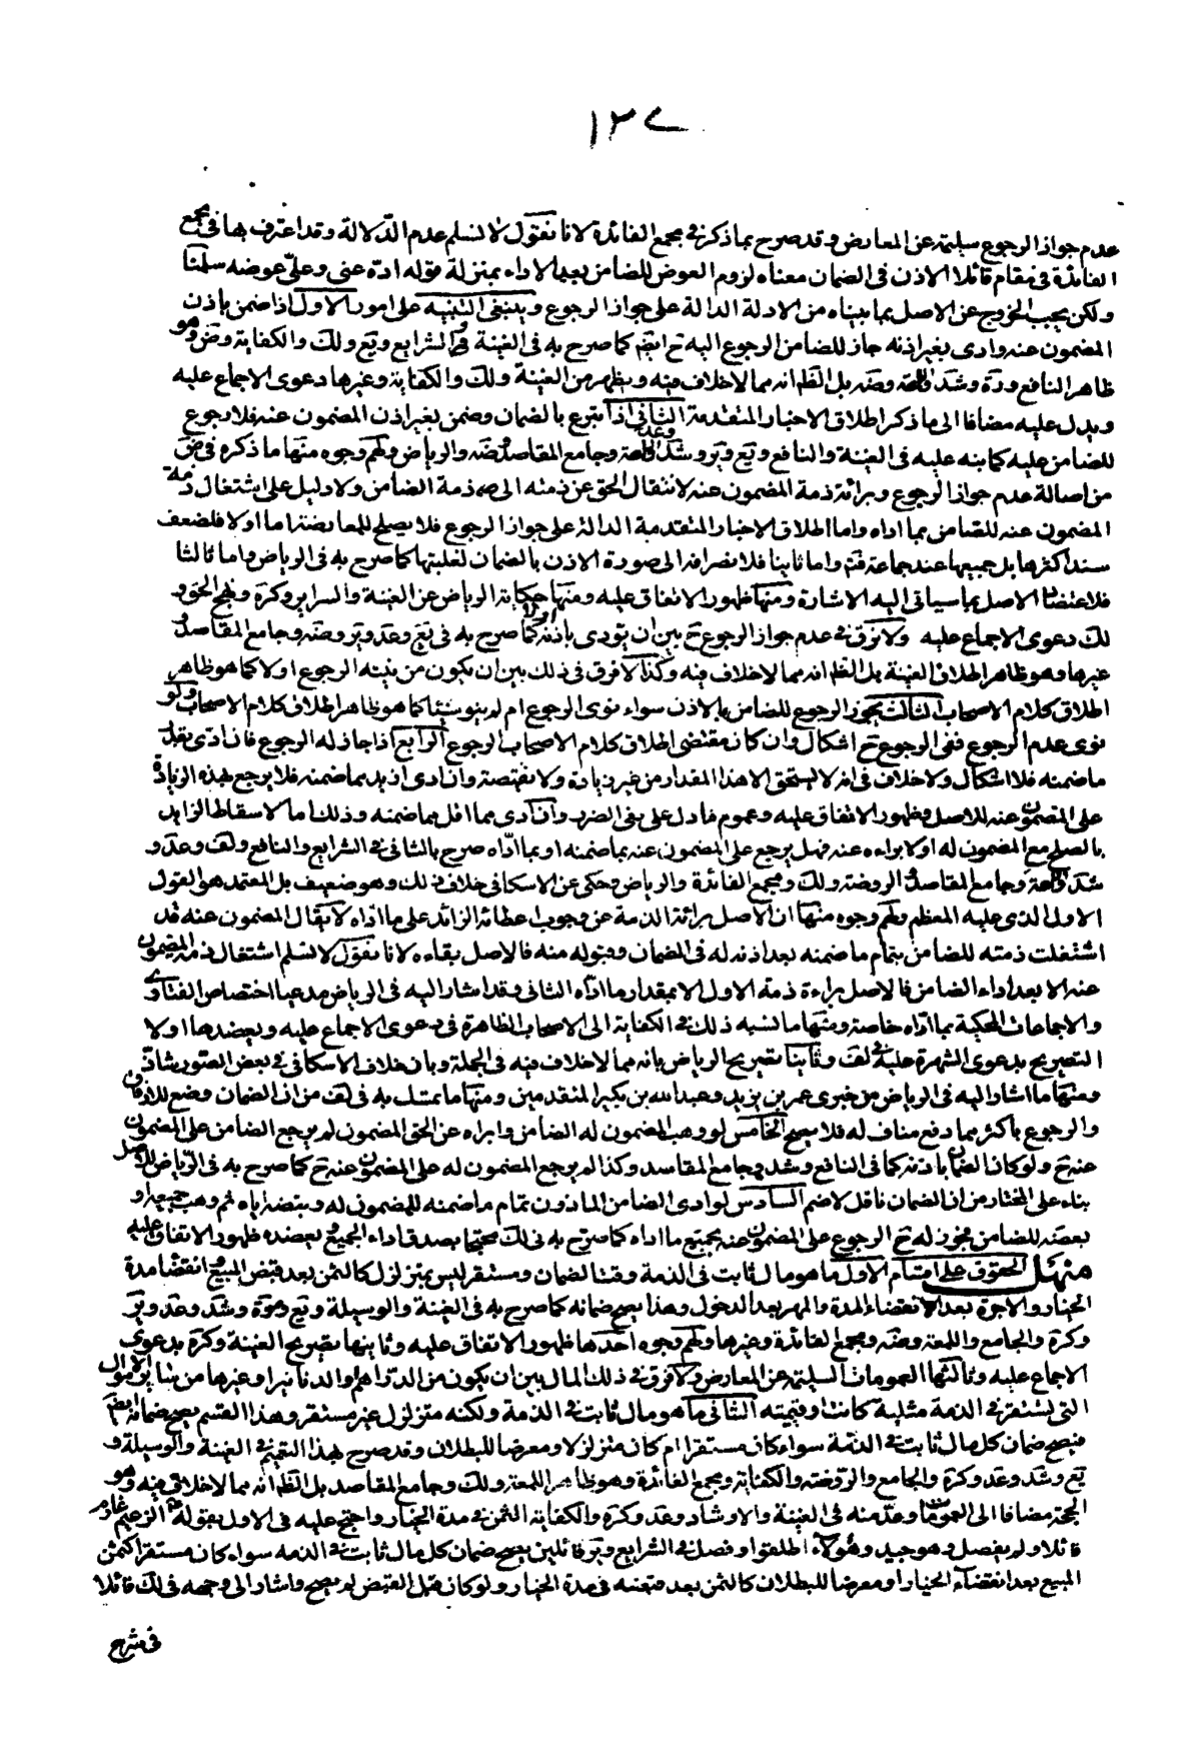 ١٣٧
عدم جواز الرجوع سليمة عن المعارض وقد صرح بما ذكر في مجمع الفائدة لانا نقول لا نسلم عدم الدلالة وقد اعترف بها في مجمع
الفائدة في مقام قائلا الاذن في الضمان معناه لزوم العوض للضامن بعد الاداء بمنزلة قوله اده عني وعلي عوضه سلمنا
ولكن يجب الخروج عن الاصل بما بيناه من الادلة الدالة على جواز الرجوع وينبغي التنبيه على امور الاول اذا ضمن باذن
المضمون عنه وادى بغير اذنه جاز للضامن الرجوع اليه ح ايضا كما صرح به في الغنية والشرايع ويع ولك والكفاية وض وهو
ظاهر النافع ود وشد وضه بل الظ انه مما لا خلاف فيه ويظهر من الغنية ولك والكفاية وغيرها دعوى الاجماع عليه
ويدل عليه مضافا الى ما ذكر اطلاق الاخبار المتقدمة الثاني اذا تبرع بالضمان وضمن بغير اذن المضمون عنه فلا رجوع
للضامن عليه كما نبه عليه في الغنية والنافع ويع وير وشد وعد واللمعة وجامع المقاصد وضه والرياض ولهم وجوه منها ما ذكره في ض
من اصالة عدم جواز الرجوع وبرائة ذمة المضمون عنه لانتقال الحق عن ذمته الى ذمة الضامن ولا دليل على اشتغال ذمة
المضمون عنه للضامن بما اداه واما اطلاق الاخبار المتقدمة الدالة على جواز الرجوع فلا يصلح للمعارضة اما اولا فلضعف
سند اكثرها بل جميعها عند جماعة واما ثانيا فلانصرافه الى صورة الاذن بالضمان لغلبتها كما صرح به في الرياض واما ثالثا
فلاعتضاد الاصل بما سياتي اليه الاشارة ومنها ظهور الاتفاق عليه ومنها حكاية الرياض عن الغنية والسراير وكرة ونهج الحق و
لك دعوى الاجماع عليه ولا فرق في عدم جواز الرجوع ح بين ان يؤدى باذنه اولا كما صرح به في يع وعد وير وضه وجامع المقاصد و
غيرها وهو ظاهر اطلاق الغنية بل الظ انه مما لا خلاف فيه وكذا لا فرق في ذلك بين ان يكون من نيته الرجوع او لا كما هو ظاهر
اطلاق كلام الاصحاب الثالث يجوز الرجوع للضامن بالاذن سواء نوى الرجوع ام لم ينو شيئا كما هو ظاهر اطلاق كلام الاصحاب ولو
نوى عدم الرجوع ففي الرجوع ح اشكال وان كان مقتضى اطلاق كلام الاصحاب الرجوع الرابع اذا جاز له الرجوع فان ادى بقدر
ما ضمنه فلا اشكال ولا خلاف في انه لا يستحق الا هذا المقدار من غير زيادة ولا نقيصة وان ادى ازيد مما ضمنه فلا يرجع بهذه الزيادة
على المضمون عنه للاصل وظهور الاتفاق عليه وعموم ما دل على نفي الضرر وان ادى مما اقل مما ضمنه وذلك اما لاسقاط الزايد
بالصلح مع المضمون له او لابراءه عنه فهل يرجع على المضمون عنه بما ضمنه او بما اداه صرح بالثاني في الشرايع والنافع ولف وعد و
شد واللمعة وجامع المقاصد والروضة ولك ومجمع الفائدة والرياض وحكى عن الاسكافي خلاف ذلك وهو ضعيف بل المعتمد هو القول
الاول الذي عليه المعظم ولهم وجوه منها ان الاصل برائة الذمة عن وجوب اعطائه الزائد على ما اداه لا يقال المضمون عنه قد
اشتغلت ذمته للضامن بتمام ما ضمنه بعد اذنه له في الضمان وقبوله منه فالاصل بقاءه لانا نقول لا نسلم اشتغال ذمة المضمون
عنه الا بعد اداء الضامن فالاصل براءة ذمة الاول الا بمقدار ما اداه الثاني وقد اشار اليه في الرياض مدعيا اختصاص الفتاوى
والاجماعات المحكية بما اداه خاصة ومنها ما نسبه ذلك في الكفاية الى الاصحاب الظاهرة في دعوى الاجماع عليه ويعضدها اولا
التصريح بدعوى الشهرة عليه في لف وثانيا تصريح الرياض بانه مما لا خلاف فيه في الجملة وبان خلاف الاسكافي في بعض الصور شاذ
ومنها ما اشار اليه في الرياض من خبري عمر بن يزيد وعبدالله بن بكير المتقدمين ومنها ما تمسك به في لف من ان الضمان وضع للارفاق
والرجوع باكثر مما دفع مناف له فلا يصح الخامس لو وهب المضمون له الضامن وابراه عن الحق المضمون لم يرجع الضامن على المضمون
عنه ح ولو كان الضمان باذنه كما في النافع وشد وجامع المقاصد وكذا لم يرجع المضمون له على المضمون عنه ح كما صرح به في الرياض للاصل
بناء على المختار من ان الضمان ناقل لا ضم السادس لو ادى الضامن الماذون تمام ما ضمنه للمضمون له وقبضه اياه ثم وهب جميعه او
بعضه للضامن فيجوز له ح الرجوع على المضمون عنه بجميع ما اداه كما صرح به في لك محتجا بصدق اداء الجميع ويعضده ظهور الاتفاق عليه
منهل الحقوق على اقسام الاول ما هو مال ثابت في الذمة وقت الضمان ومستقر ليس بمتزلزل كالثمن بعد قبض المبيع وانقضاء مدة
الخيار والاجرة بعد انقضاء المدة والمهر بعد الدخول وهذا يصح ضمانه كما صرح به في الغنية والوسيلة ويع وشد وعد وير
وكرة والجامع واللمعة وضه ومجمع الفائدة وغيرها ولهم وجوه احدها ظهور الاتفاق عليه وثانيها تصريح الغنية وكرة بدعوى
الاجماع عليه وثالثها العمومات السليمة عن المعارض ولا فرق في ذلك المال بين ان يكون من الدراهم والدنانير او غيرها من ساير الاموال
التي تستقر في الذمة مثلية كانت او قيمية الثاني ما هو مال ثابت في الذمة ولكنه متزلزل غير مستقر وهذا القسم يصح ضمانه ايضا
فيصح ضمان كل مال ثابت في الذمة سواء كان مستقرا ام كان متزلزلا ومعرضا للبطلان وقد صرح بهذا التعميم في الغنية والوسيلة و
يع وشد وعد وكرة والجامع والروضة والكفاية ومجمع الفائدة وهو ظاهر اللمعة ولك وجامع المقاصد بل الظ انه مما لا خلاف فيه وهو
الحجة مضافا الى العمومات وعد منه في الغنية والارشاد وعد وكرة والكفاية الثمن في مدة الخيار واحتج عليه في الاول بقوله الزعيم غارم
قائلا ولم يفصل وهو جيد وهؤلاء اطلقوا وفصل في الشرايع وير قائلين يصح ضمان كل مال ثابت في الذمه سواء كان مستقرا كثمن
المبيع بعد انقضاء الخيار او معرضا للبطلان كالثمن بعد قبضه في مدة الخيار ولو كان قبل القبض لم يصح واشار الى وجهه في لك قائلا
في شرح